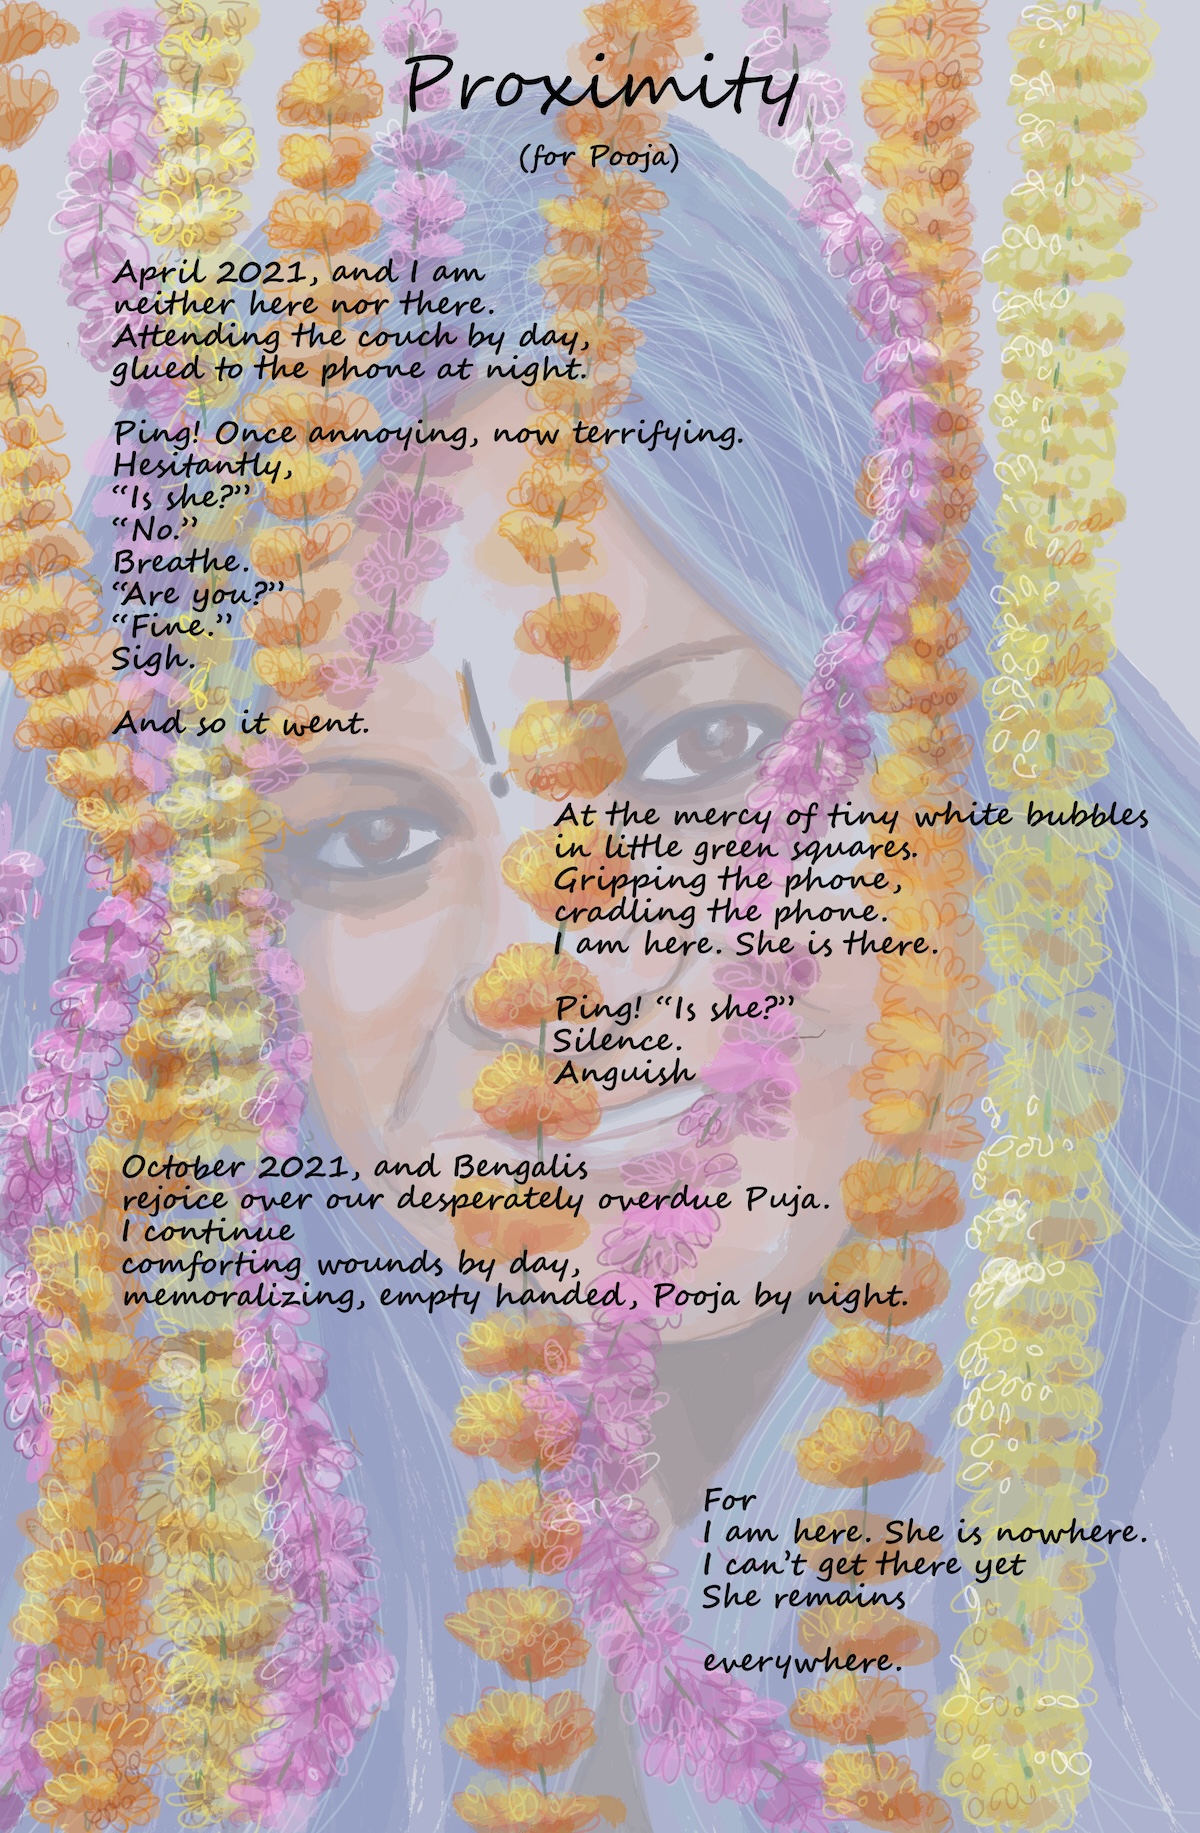 Proximity
(for Pooja)
April 2021, and I am
neither here nor there.
Attending the couch by day,
glued to the phone at night.
Ping! Once annoying, now terrifying.
Hesitantly,
“Is she?”
“No.”
Breathe.
“Are you?”
“Fine.”
Sigh.
And so it went.
At the mercy of tiny white bubbles
in little green squares.
Gripping the phone,
cradling the phone.
I am here. She is there.
Ping! “Is she?”
Silence.
Anguish
October 2021, and Bengalis
rejoice over our desperately overdue Puja.
I continue
comforting wounds by day,
memoralizing, empty handed, Pooja by night.
For
I am here. She is nowhere.
I can’t get there yet
She remains
everywhere.